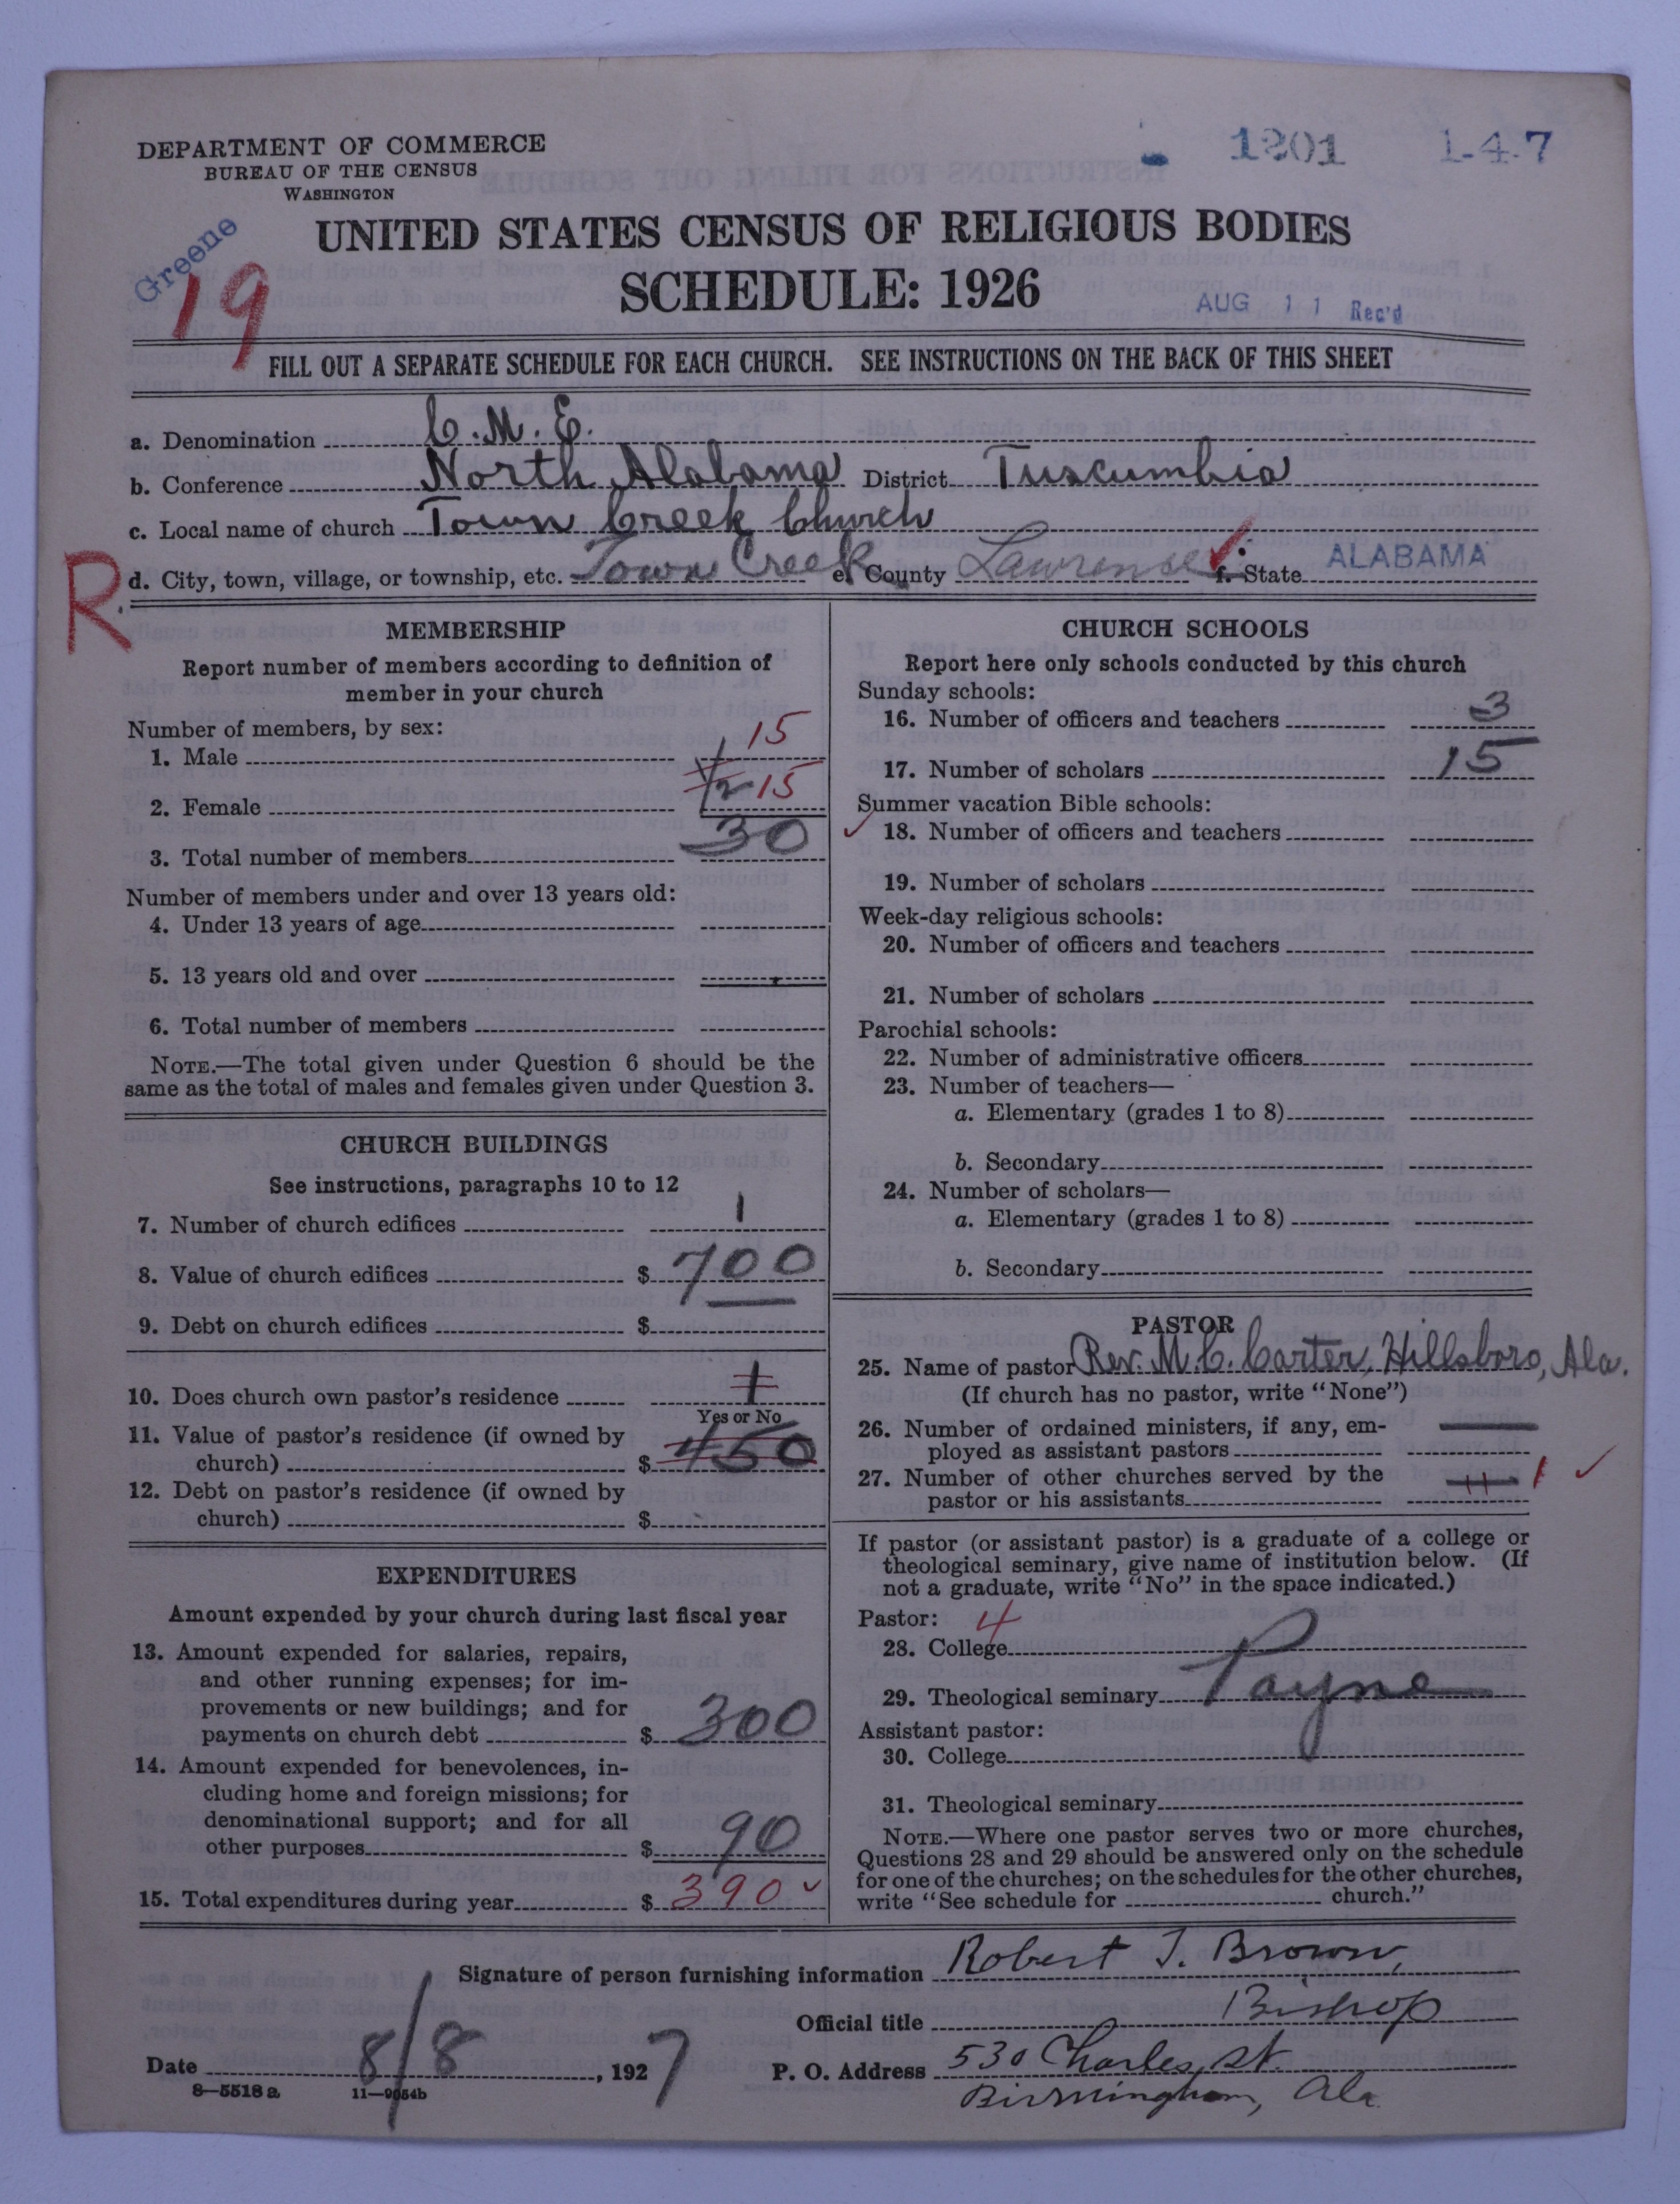 DEPARTMENT OF COMMERCE
BUREAU OF THE CENSUS
WASHINGTON
1201 1-4-7
Greene
19
UNITED STATES CENSUS OF RELIGIOUS BODIES
SCHEDULE: 1926
AUG 11 Rec'd
FILL OUT A SEPARATE SCHEDULE FOR EACH CHURCH. SEE INSTRUCTIONS ON THE BACK OF THIS SHEET
a. Denomination C.M.E.
b. Conference North Alabama District Tuscumbia
c. Local name of church Town Creek Church
R
d. City, town, village, or township, etc. Town Creek e. County Lawrence f. State ALABAMA
MEMBERSHIP
Report number of members according to definition of
member in your church
Number of members, by sex:
1. Male 15
2. Female 15
3. Total number of members 30
Number of members under and over 13 years old:
4. Under 13 years of age
5. 13 years old and over
6. Total number of members
NOTE.—The total given under Question 6 should be the
same as the total of males and females given under Question 3.
CHURCH BUILDINGS
See instructions, paragraphs 10 to 12
7. Number of church edifices 1
8. Value of church edifices $ 700
9. Debt on church edifices $
10. Does church own pastor's residence 1
Yes or No
11. Value of pastor's residence (if owned by
church) $ 450
12. Debt on pastor's residence (if owned by
church) $
EXPENDITURES
Amount expended by your church during last fiscal year
13. Amount expended for salaries, repairs,
and other running expenses; for im-
provements or new buildings; and for
payments on church debt $ 300
14. Amount expended for benevolences, in-
cluding home and foreign missions; for
denominational support; and for all
other purposes $ 90
15. Total expenditures during year $ 390 ✓
CHURCH SCHOOLS
Report here only schools conducted by this church
Sunday schools:
16. Number of officers and teachers 3
17. Number of scholars 15
Summer vacation Bible schools:
✓ 18. Number of officers and teachers
19. Number of scholars
Week-day religious schools:
20. Number of officers and teachers
21. Number of scholars
Parochial schools:
22. Number of administrative officers
23. Number of teachers—
a. Elementary (grades 1 to 8)
b. Secondary
24. Number of scholars—
a. Elementary (grades 1 to 8)
b. Secondary
PASTOR
25. Name of pastor Rev. M.C. Carter, Hillsboro, Ala.
(If church has no pastor, write "None")
26. Number of ordained ministers, if any, em-
ployed as assistant pastors
27. Number of other churches served by the
pastor or his assistants 1 ✓
If pastor (or assistant pastor) is a graduate of a college or
theological seminary, give name of institution below. (If
not a graduate, write "No" in the space indicated.)
Pastor: 4
28. College
29. Theological seminary Payne
Assistant pastor:
30. College
31. Theological seminary
NOTE.—Where one pastor serves two or more churches,
Questions 28 and 29 should be answered only on the schedule
for one of the churches; on the schedules for the other churches,
write "See schedule for church."
Signature of person furnishing information Robert T. Brown,
Official title Bishop
Date 8/8, 1927 P. O. Address 530 Charles St.
Birmingham, Ala
8—5518 a 11—9054b